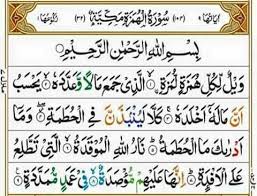 اٰيَاتُهَا ٩ (١٠٤) سُوْرَةُ الْهُمَزَةِ مَكِّيَّةٌ (٣٢) رُكُوْعُهَا ١
بِسْمِ اللّٰهِ الرَّحْمٰنِ الرَّحِيْمِ
وَيْلٌ لِّكُلِّ هُمَزَةٍ لُّمَزَةِ ۙ الَّذِيْ جَمَعَ مَالًا وَّعَدَّدَهٗ ۙ يَحْسَبُ
اَنَّ مَالَهٗٓ اَخْلَدَهٗ ۚ كَلَّا لَيُنْۢبَذَنَّ فِي الْحُطَمَةِ ۖ وَمَآ
اَدْرٰىكَ مَا الْحُطَمَةُ ؕ نَارُ اللّٰهِ الْمُوْقَدَةُ ۙ الَّتِيْ تَطَّلِعُ
عَلَى الْاَفْـِٕدَةِ ؕ اِنَّهَا عَلَيْهِمْ مُّؤْصَدَةٌ ۙ فِيْ عَمَدٍ مُّمَدَّدَةٍ